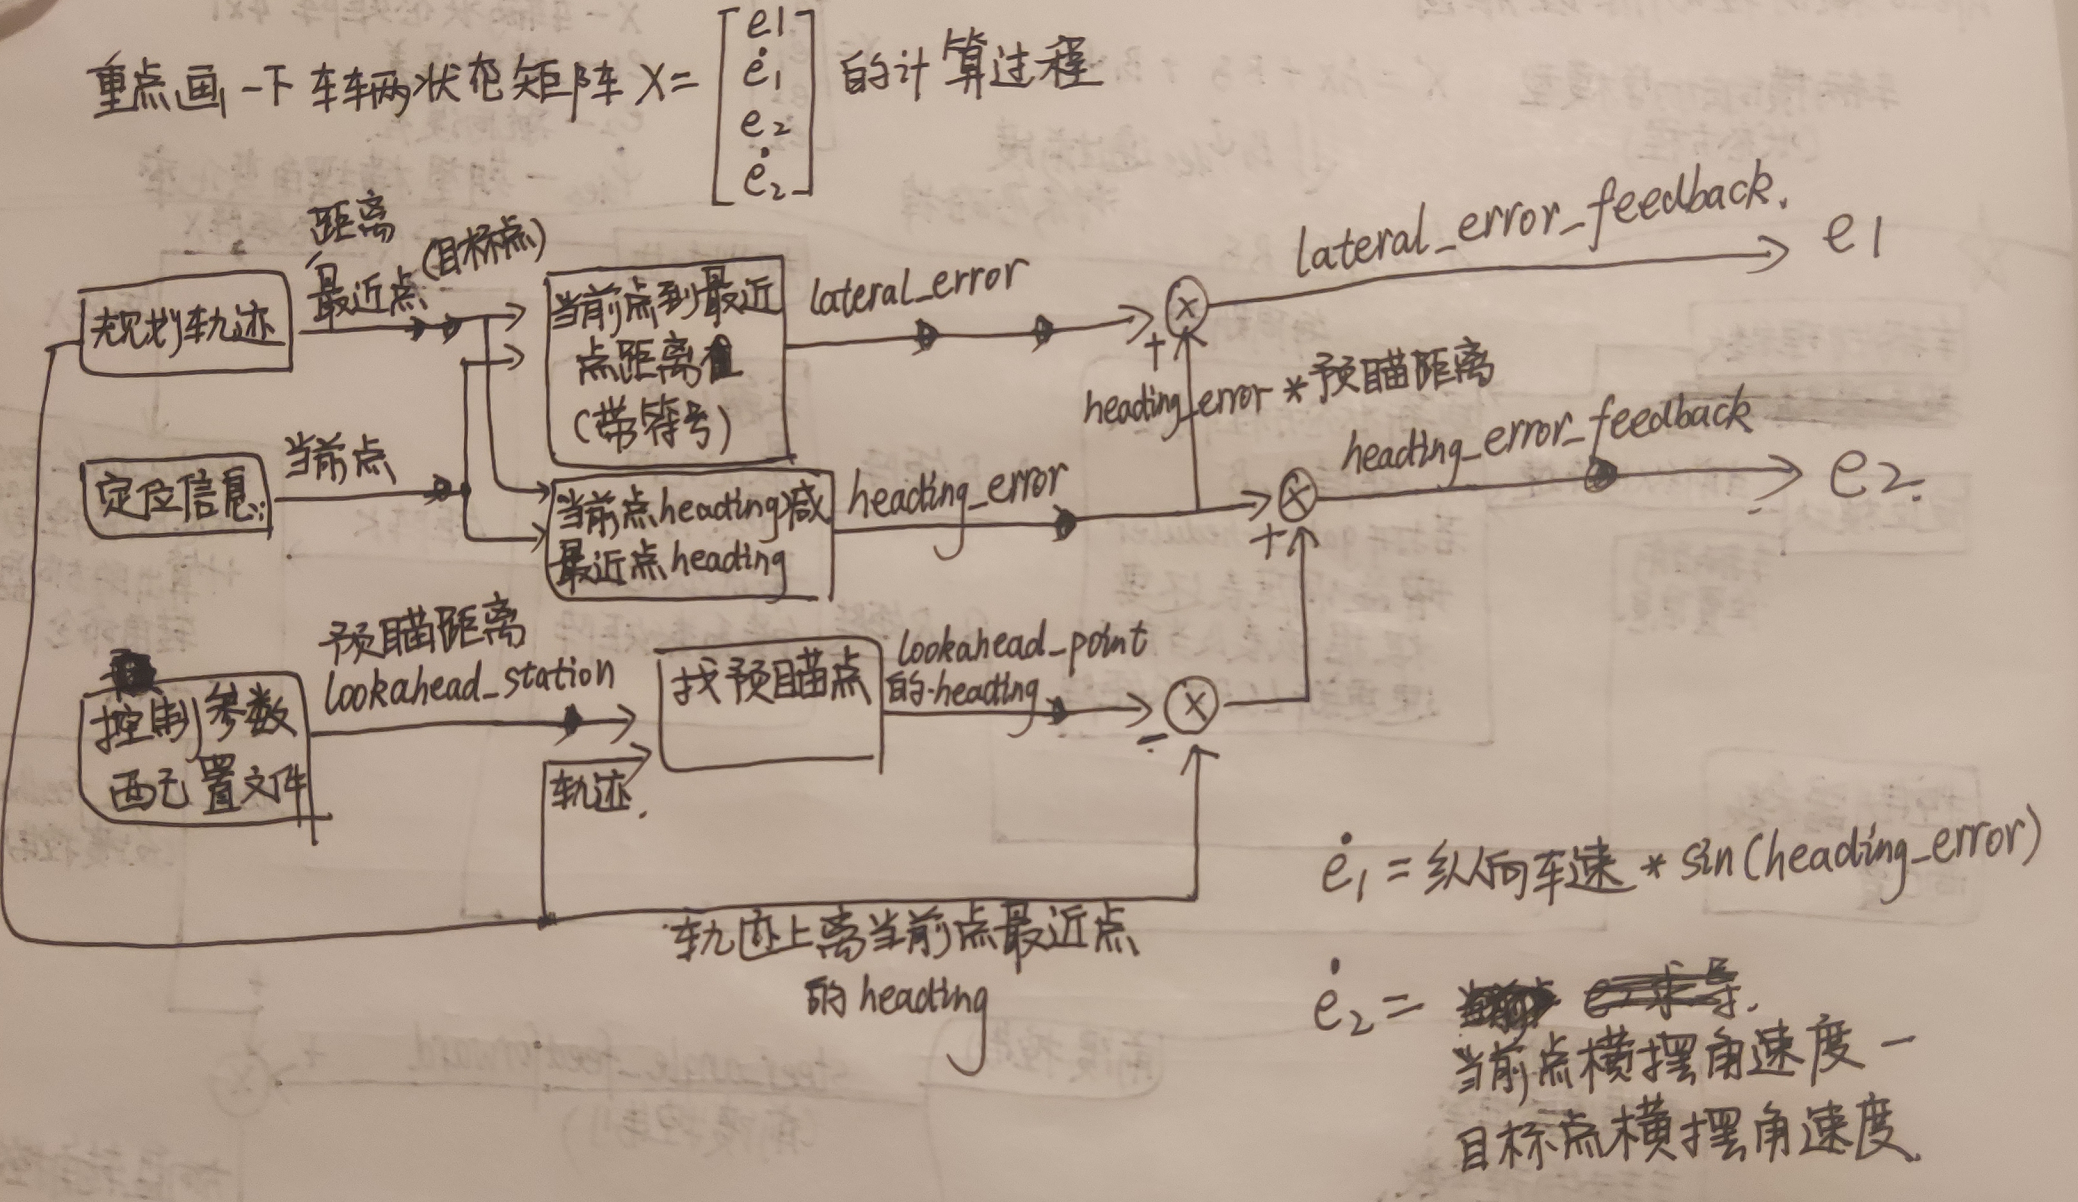 重点画一下车辆状态矩阵 X= [e1 ė1 e2 ė2] 的计算过程
距离
最近点(目标点)
规划轨迹
当前点到最近
点距离值
(带符号)
lateral_error
+
lateral_error_feedback.
e1
heading_error*预瞄距离
定位信息
当前点
当前点heading减
最近点heading
heading_error
+
heading_error_feedback
e2.
控制参数
配置文件
预瞄距离
lookahead_station
轨迹.
找预瞄点
lookahead_point
的heading
-
轨迹上离当前点最近点
的heading
ė1=纵向车速*sin(heading_error)
ė2=
当前点横摆角速度-
目标点横摆角速度.